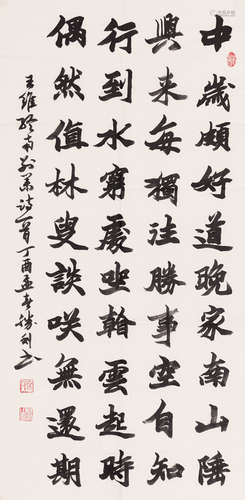 中歲頗好道晚家南山陲
興来每獨往勝事空自知
行到水窮處坐看雲起時
偶然值林叟談咲無還期
王維終南别業詩一首丁酉孟春勝利书